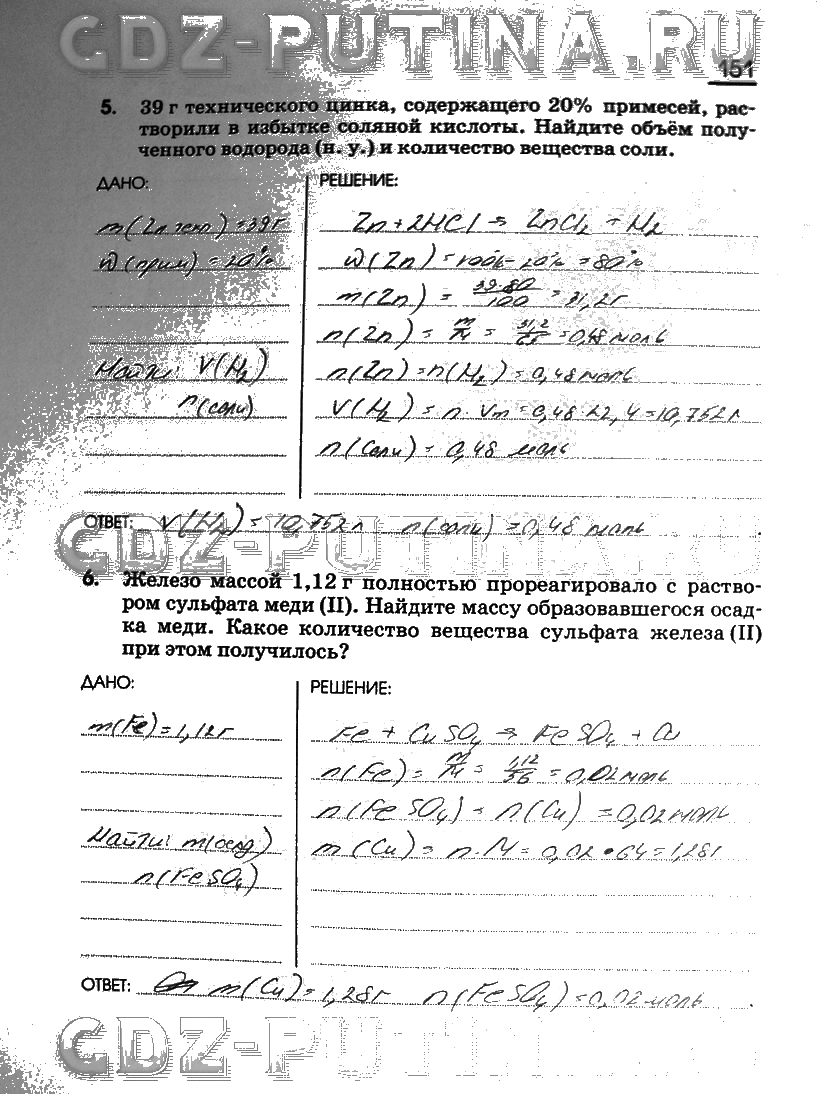 GDZ-PUTINA.RU
151
5. 39 г технического цинка, содержащего 20% примесей, рас-
творили в избытке соляной кислоты. Найдите объём полу-
ченного водорода (н. у.) и количество вещества соли.
ДАНО:
m(Zn техн) = 39 г
W(прим) = 20%
Найти: V(H₂)
n(соли)
РЕШЕНИЕ:
Zn + 2HCl = ZnCl₂ + H₂
W(Zn) = 100% - 20% = 80%
m(Zn) = 39·80/100 = 31,2 г
n(Zn) = m/M = 31,2/65 = 0,48 моль
n(Zn) = n(H₂) = 0,48 моль
V(H₂) = n · Vm = 0,48 · 22,4 = 10,752 л
n(соли) = 0,48 моль
ОТВЕТ: V(H₂) = 10,752 л n(соли) = 0,48 моль
GDZ-PUTINA.RU
6. Железо массой 1,12 г полностью прореагировало с раство-
ром сульфата меди (II). Найдите массу образовавшегося осад-
ка меди. Какое количество вещества сульфата железа (II)
при этом получилось?
ДАНО:
m(Fe) = 1,12 г
Найти: m(осад.)
n(FeSO₄)
РЕШЕНИЕ:
Fe + CuSO₄ = FeSO₄ + Cu
n(Fe) = m/M = 1,12/56 = 0,02 моль
n(FeSO₄) = n(Cu) = 0,02 моль
m(Cu) = n · M = 0,02 · 64 = 1,28 г
ОТВЕТ: m(Cu) = 1,28 г n(FeSO₄) = 0,02 моль
GDZ-PUTINA.RU